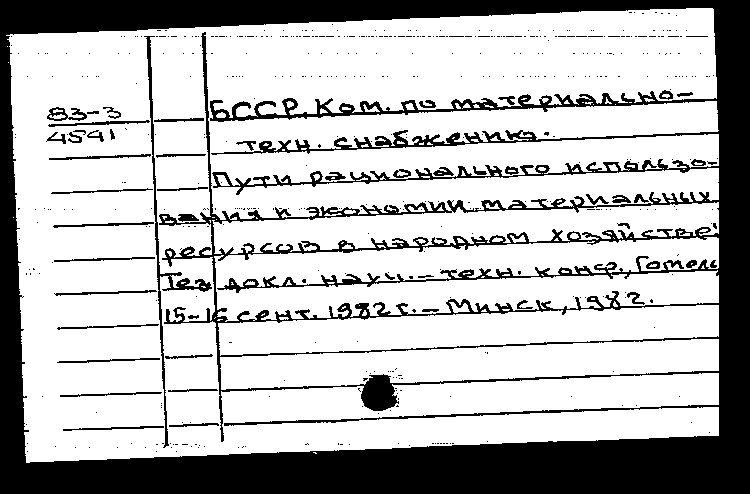 83-3
4541
БССР. Ком. по материально-
техн. снабжению.
Пути рационального использо-
вания и экономии материальных
ресурсов в народном хозяйстве:
Тез. докл. науч.-техн. конф., Гомель,
15-16 сент. 1982 г. - Минск, 1982.